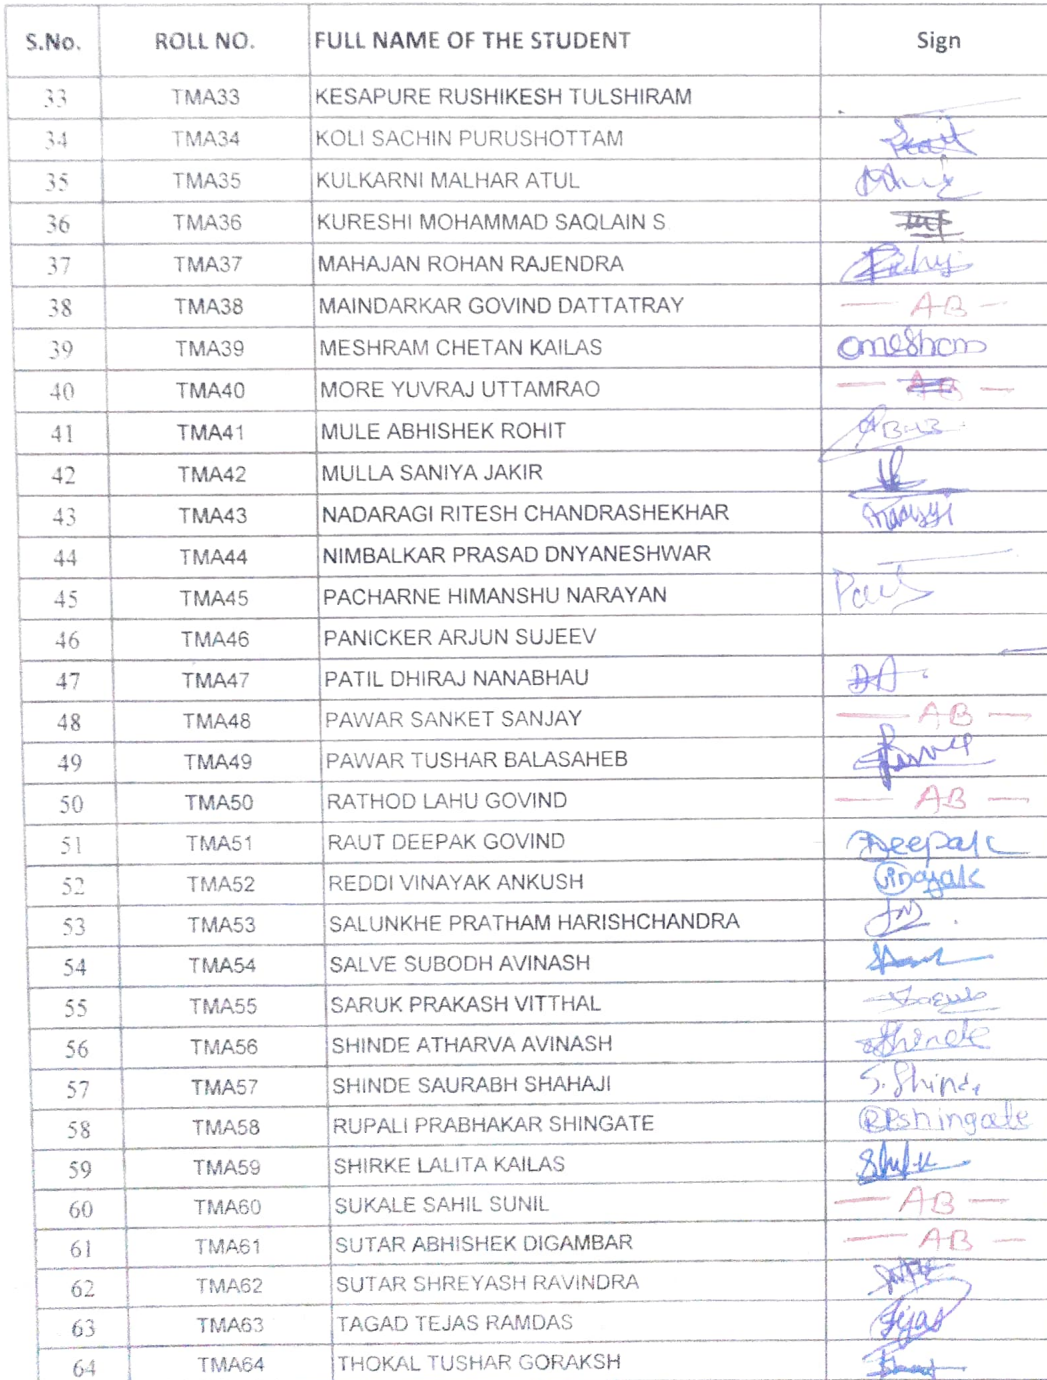 S.No. ROLL NO. FULL NAME OF THE STUDENT Sign
33 TMA33 KESAPURE RUSHIKESH TULSHIRAM
34 TMA34 KOLI SACHIN PURUSHOTTAM
35 TMA35 KULKARNI MALHAR ATUL
36 TMA36 KURESHI MOHAMMAD SAQLAIN S
37 TMA37 MAHAJAN ROHAN RAJENDRA
38 TMA38 MAINDARKAR GOVIND DATTATRAY — AB —
39 TMA39 MESHRAM CHETAN KAILAS
40 TMA40 MORE YUVRAJ UTTAMRAO — AB —
41 TMA41 MULE ABHISHEK ROHIT
42 TMA42 MULLA SANIYA JAKIR
43 TMA43 NADARAGI RITESH CHANDRASHEKHAR
44 TMA44 NIMBALKAR PRASAD DNYANESHWAR
45 TMA45 PACHARNE HIMANSHU NARAYAN
46 TMA46 PANICKER ARJUN SUJEEV
47 TMA47 PATIL DHIRAJ NANABHAU
48 TMA48 PAWAR SANKET SANJAY — AB —
49 TMA49 PAWAR TUSHAR BALASAHEB
50 TMA50 RATHOD LAHU GOVIND — AB —
51 TMA51 RAUT DEEPAK GOVIND Deepak
52 TMA52 REDDI VINAYAK ANKUSH Vinayak
53 TMA53 SALUNKHE PRATHAM HARISHCHANDRA
54 TMA54 SALVE SUBODH AVINASH
55 TMA55 SARUK PRAKASH VITTHAL
56 TMA56 SHINDE ATHARVA AVINASH Shinde
57 TMA57 SHINDE SAURABH SHAHAJI S. Shinde
58 TMA58 RUPALI PRABHAKAR SHINGATE RPShingate
59 TMA59 SHIRKE LALITA KAILAS
60 TMA60 SUKALE SAHIL SUNIL — AB —
61 TMA61 SUTAR ABHISHEK DIGAMBAR — AB —
62 TMA62 SUTAR SHREYASH RAVINDRA
63 TMA63 TAGAD TEJAS RAMDAS Tejas
64 TMA64 THOKAL TUSHAR GORAKSH